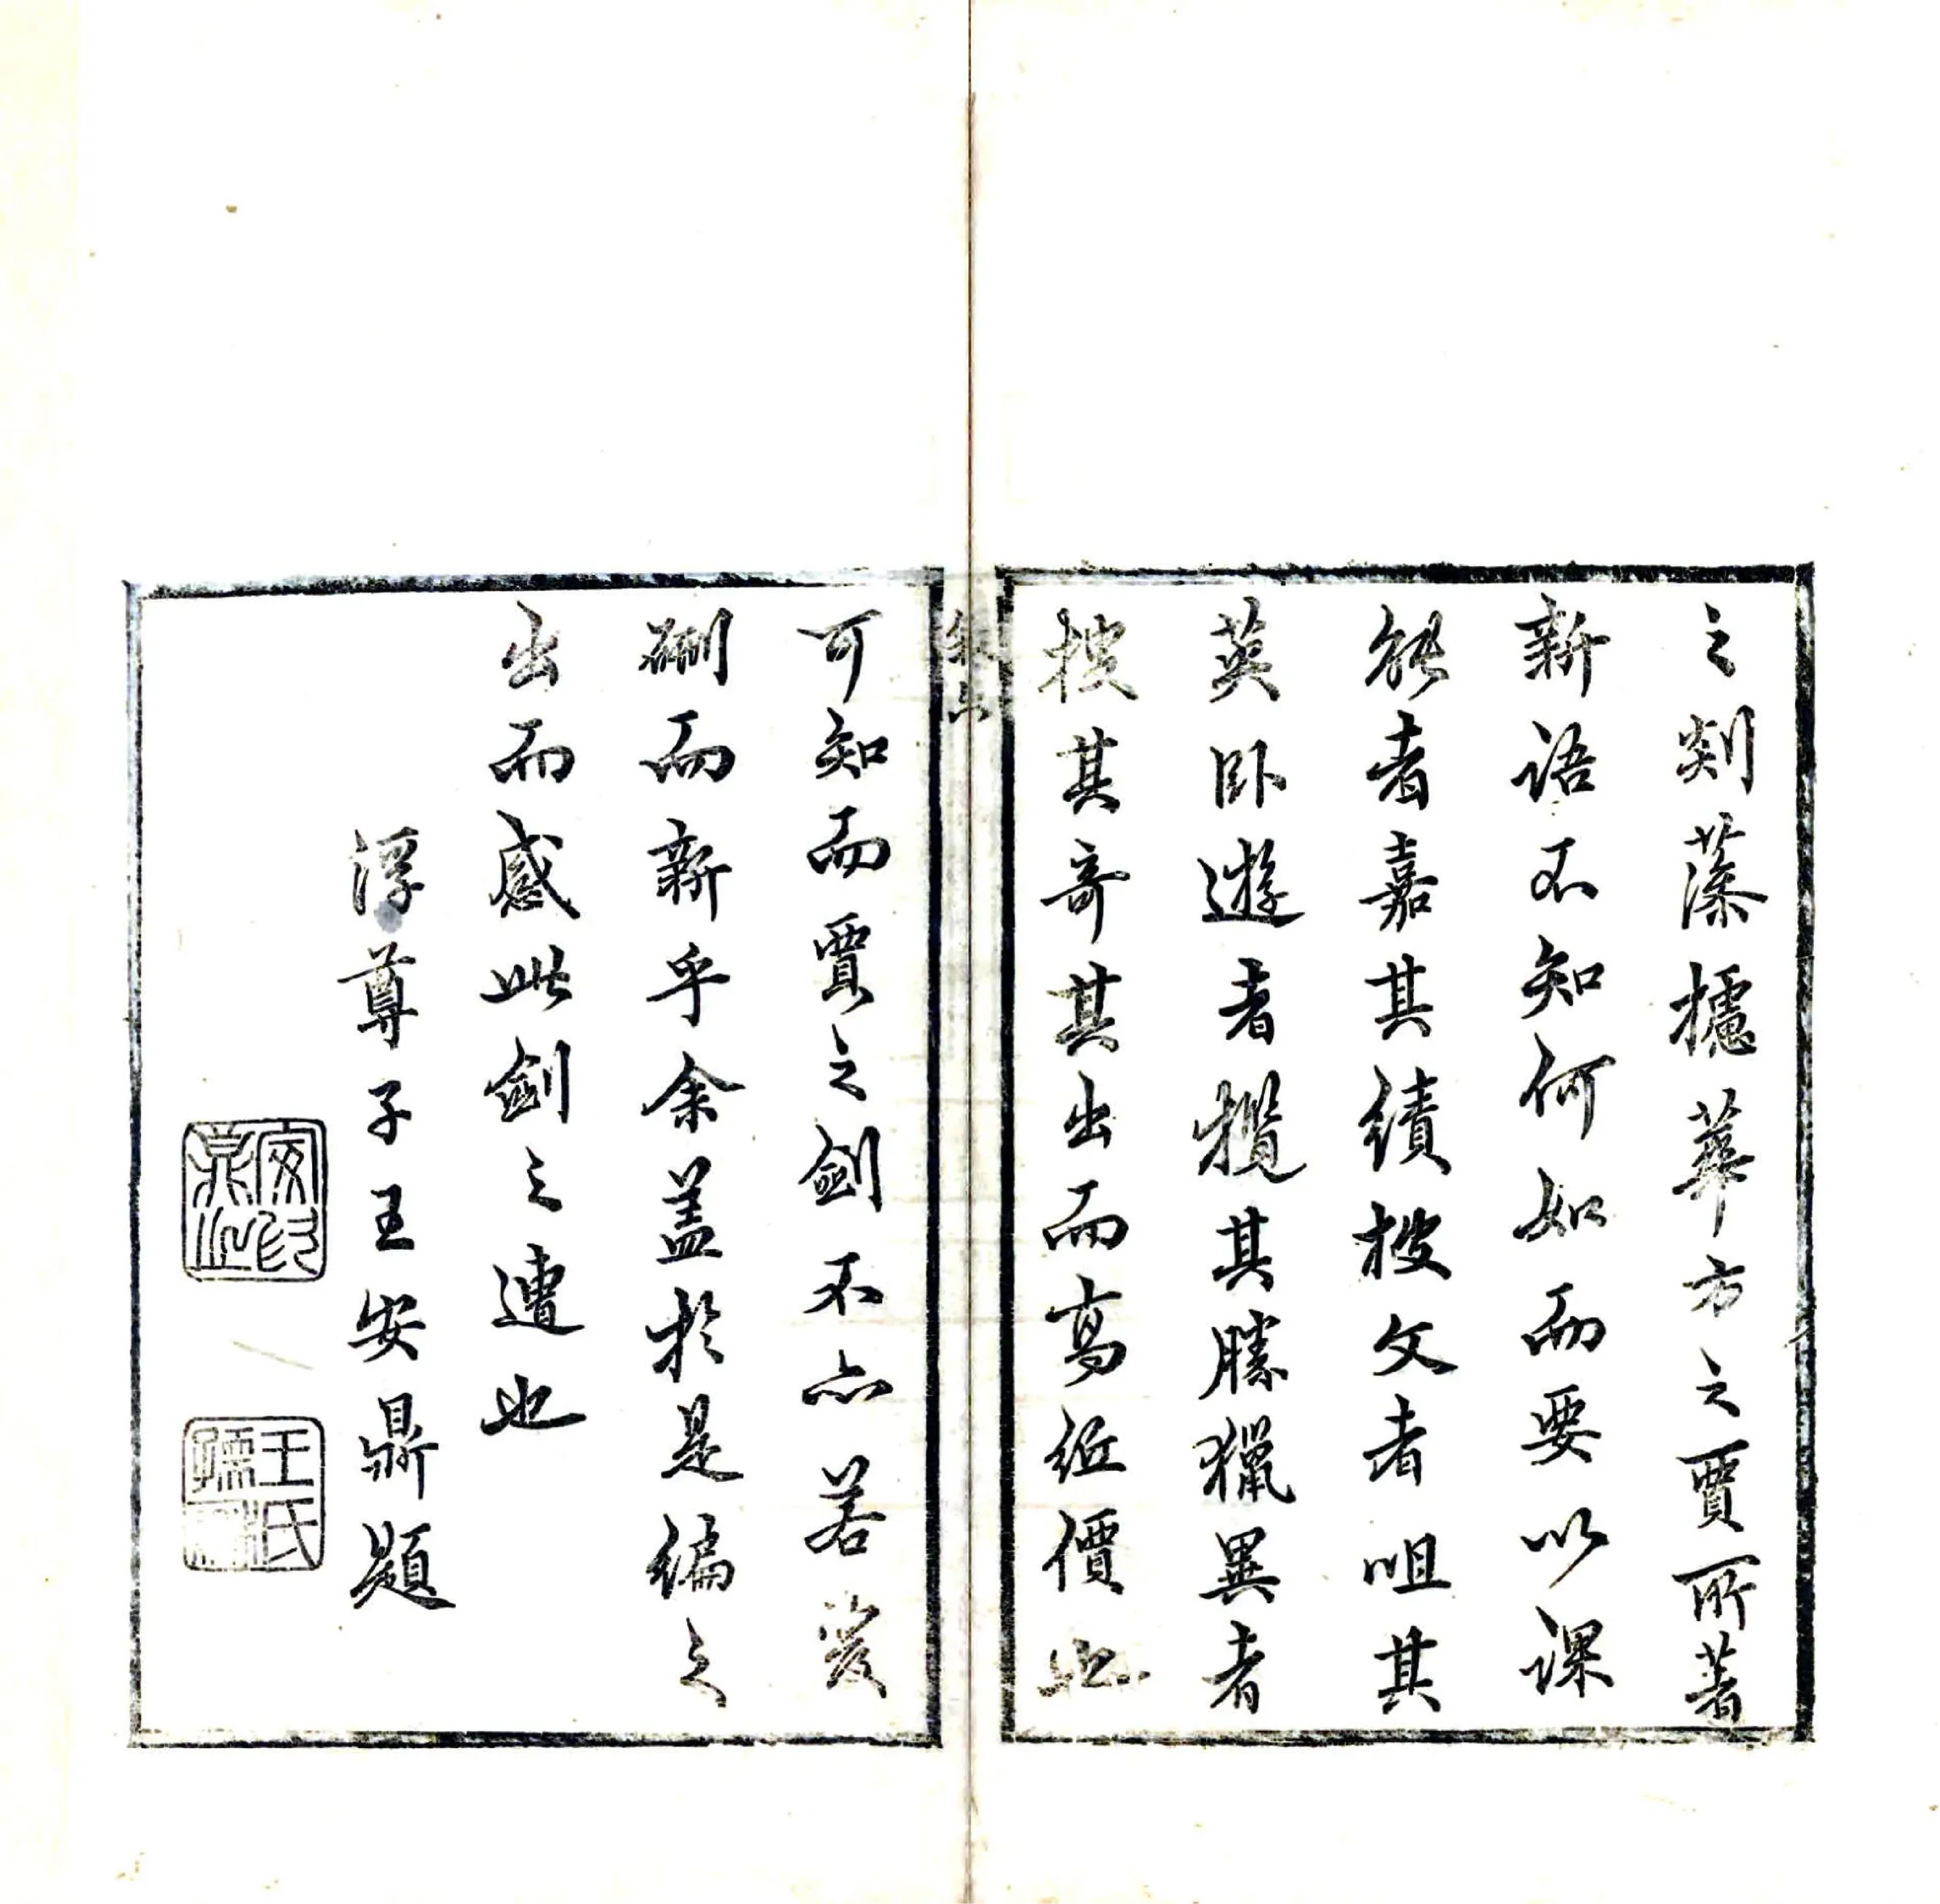 之剡藻攄華方之賈所著
新語不知何如而要以課
能者嘉其績搜文者咀其
英卧遊者攬其勝獵異者
搜其奇其出而髙紙價也
可知而賈之劍不亦若發
硎而新乎余盖於是編之
出而感此劍之遭也
浮尊子王安鼎題
王氏